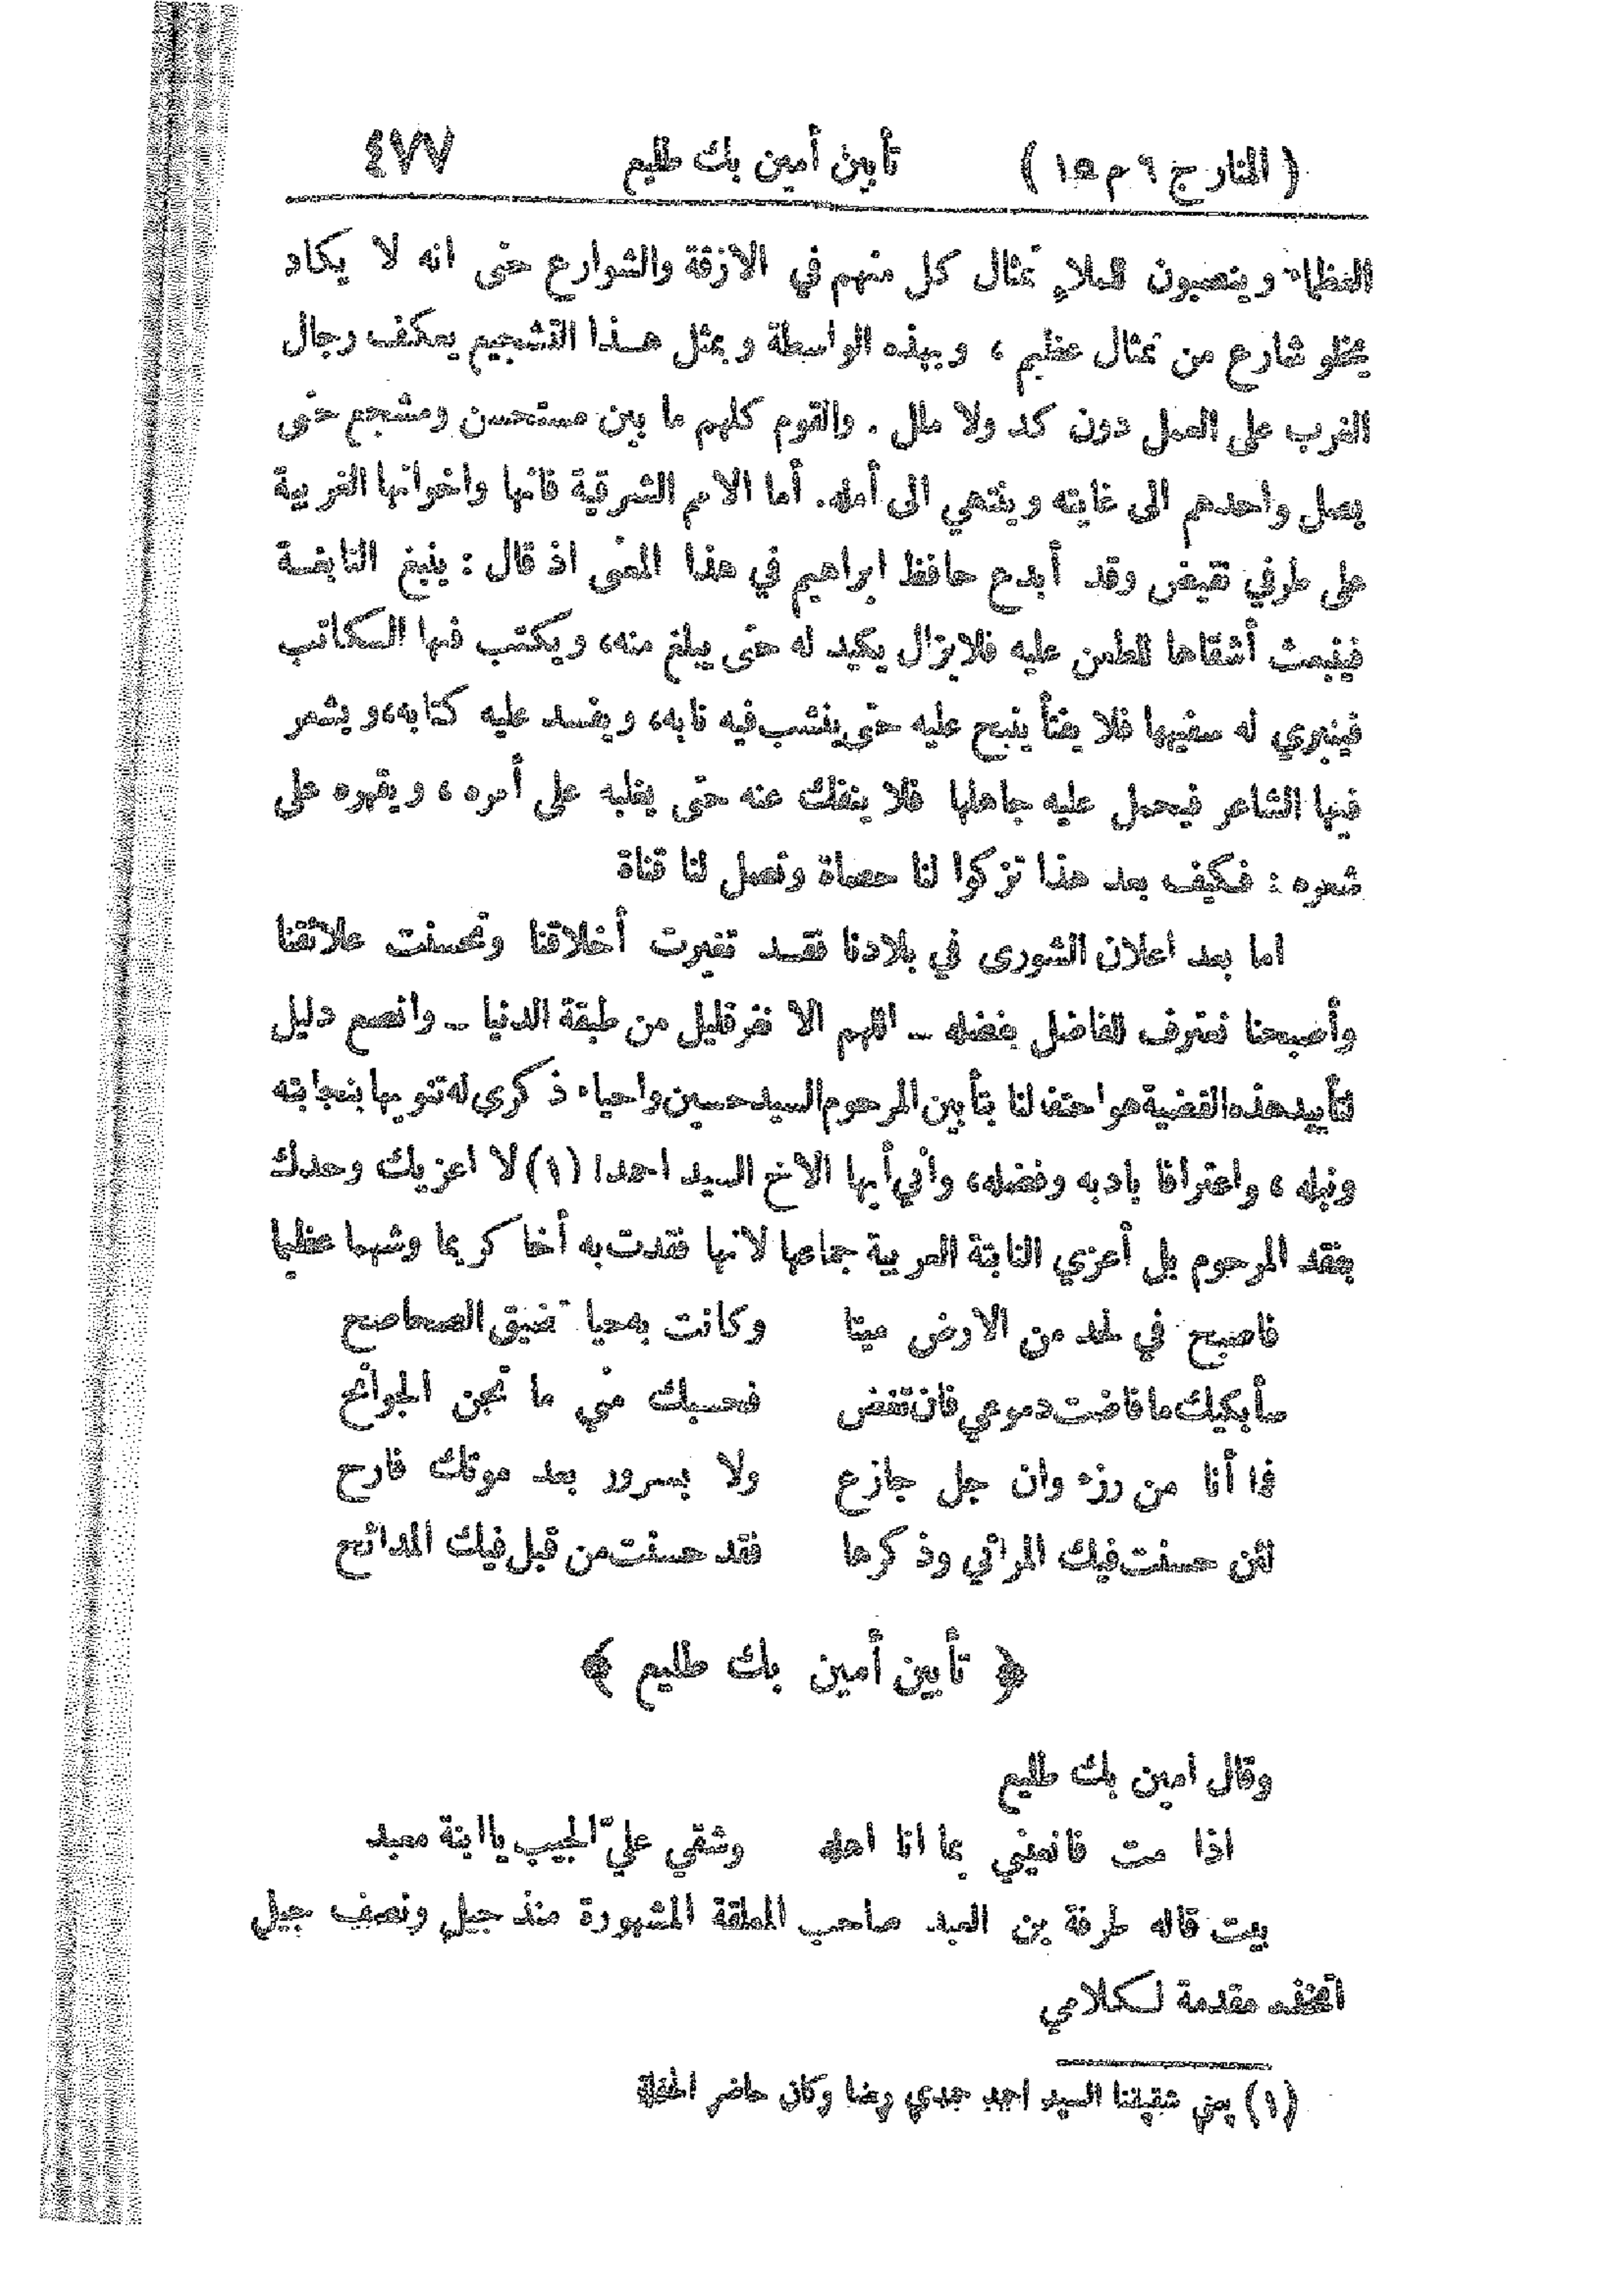 ( المنار ج ٦ م ١٥ ) تأبين أمين بك طليم ٤٧٧
العظماء وينصبون للملاء تمثال كل منهم في الازقة والشوارع حتى انه لا يكاد
يخلو شارع من تمثال عظيم ، وبهذه الواسطة وبمثل هذا التشجيع يعكف رجال
الغرب على العمل دون كد ولا ملل . والقوم كلهم ما بين مستحسن ومشجع حتى
يصل واحدهم الى غايته وينتهي الى أمله. أما الامم الشرقية فانها واخواتها الغربية
على طرفي نقيض وقد أبدع حافظ ابراهيم في هذا المعنى اذ قال : ينبغ النابغة
فينبعث أشقاها للطعن عليه فلا يزال يكيد له حتى يبلغ منه، ويكتب فيها الكاتب
فينبري له سفيهها فلا يفتأ ينبح عليه حتى ينشب فيه نابه، ويفسد عليه كتابه، ويشعر
فيها الشاعر فيحمل عليه جاهلها فلا ينفك عنه حتى يغلبه على أمره ، ويقهره على
شعره : فكيف بعد هذا تزكوا لنا حصاة وتصل لنا قناة
اما بعد اعلان الشورى في بلادنا فقد تغيرت أخلاقنا وتحسنت علائقنا
وأصبحنا نعترف للفاضل بفضله – اللهم الا نفر قليل من طبقة الدنيا – وانصع دليل
لتأييد هذه القضية هو احتفالنا بتأبين المرحوم السيد حسين واحياء ذكرى له تنويها بنجابته
ونبله ، واعترافا بادبه وفضله، واني أيها الاخ السيد احمد! (١) لا اعزيك وحدك
بفقد المرحوم بل أعزي النابتة العربية جماعها لانها فقدت به أخا كريما وشهما عظيما
فاصبح في لحد من الارض ميتا وكانت به حيا تضيق الصحاصح
سأبكيك ما فاضت دموعي فان تغض فحسبك مني ما تجن الجوانح
فما أنا من رزء وان جل جازع ولا بسرور بعد موتك فارح
لئن حسنت فيك المراثي وذكرها فقد حسنت من قبل فيك المدائح
﴿ تأبين أمين بك طليم ﴾
وقال امين بك طليم
اذا مت فانعيني بما انا اهله وشقي عليّ الجيب يا ابنة معبد
بيت قاله طرفة بن العبد صاحب المعلقة المشهورة منذ جيل ونصف جيل
اتخذه مقدمة لكلامي
(١) يعني شقيقنا السيد احمد حمدي رضا وكان حاضر الحفلة